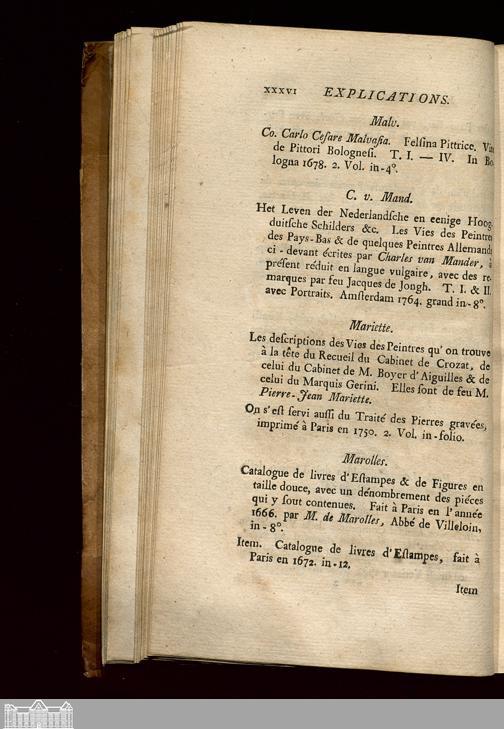 xxxvi EXPLICATIONS.
Malv.
Co. Carlo Ceſare Malvaſia. Felſina Pittrice.
de Pittori Bologneſi. T. I. — IV. In Bo-
logna 1678. 2. Vol. in-4°.
C. v. Mand.
Het Leven der Nederlandſche en eenige Hoog-
duitſche Schilders &c. Les Vies des Peintres
des Pays-Bas & de quelques Peintres Allemands
ci-devant écrites par Charles van Mander,
préſent réduit en langue vulgaire, avec des re-
marques par feu Jacques de Jongh. T. I. & II.
avec Portraits. Amſterdam 1764. grand in-8°.
Mariette.
Les deſcriptions des Vies des Peintres qu'on trouve
à la tête du Recueil du Cabinet de Crozat, de
celui du Cabinet de M. Boyer d'Aiguilles & de
celui du Marquis Gerini. Elles ſont de feu M.
Pierre-Jean Mariette.
On s'eſt ſervi auſſi du Traité des Pierres gravées,
imprimé à Paris en 1750. 2. Vol. in-folio.
Marolles.
Catalogue de livres d'Eſtampes & de Figures en
taille douce, avec un dénombrement des piéces
qui y ſout contenues. Fait à Paris en l'année
1666. par M. de Marolles, Abbé de Villeloin,
in-8°.
Item. Catalogue de livres d'Eſtampes, fait à
Paris en 1672. in-12.
Item